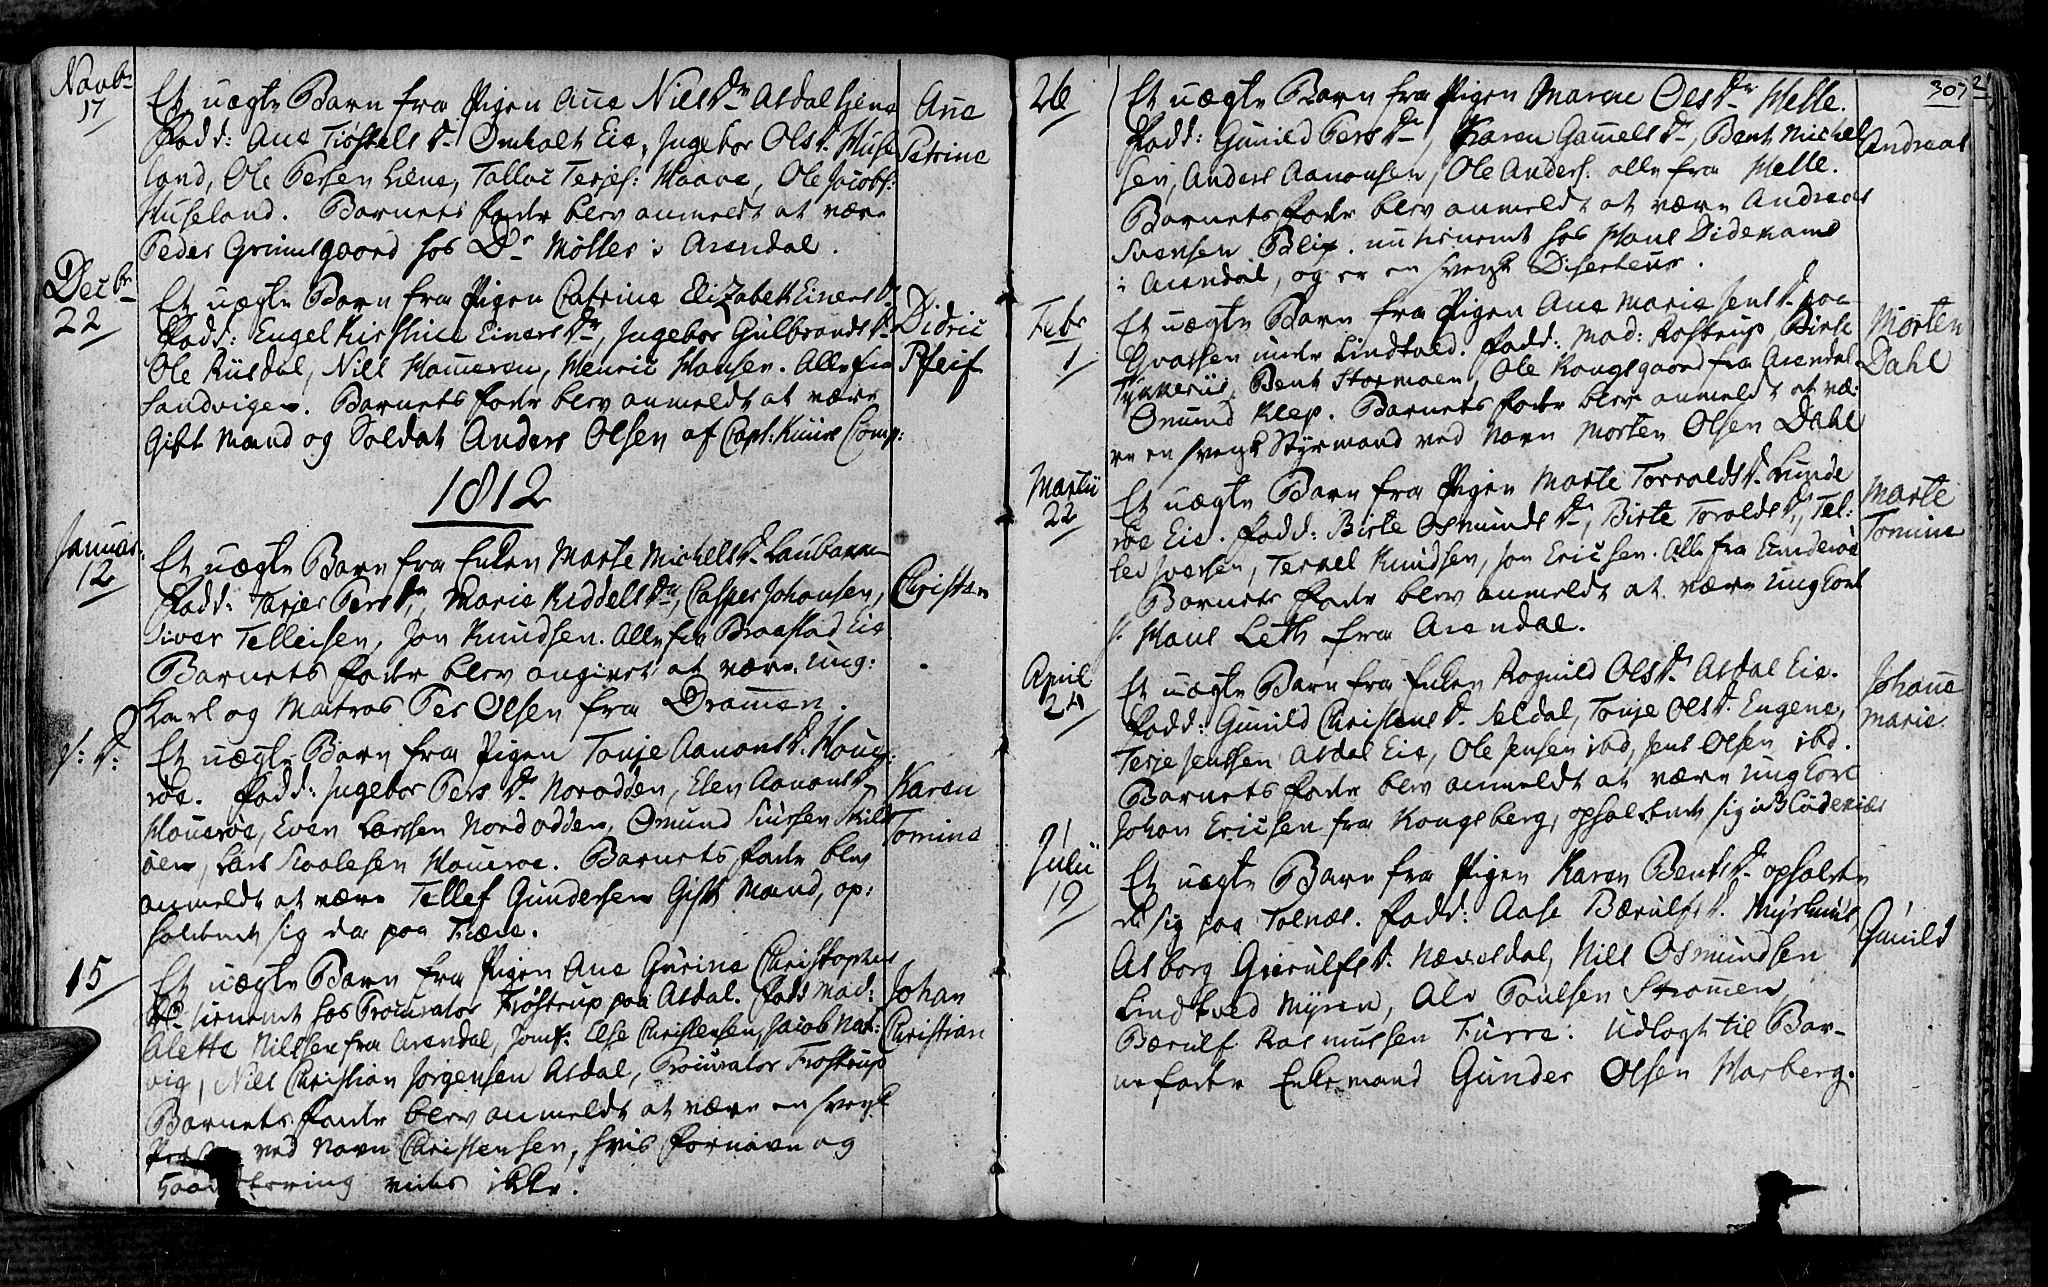 Novbr
17
Et uægte Barn fra Pigen Ane Nielsdr Asdal tjene
Fadd: Ane Tiøstelsdr Omholt Eie, Ingebor Olsdr Huse
land, Ole Persen Liene, Tallac Terjes: Haave, Ole Jacobs:
Huseland. Barnets Fader blev anmeldt at være
Peder Grimsgaard hos Dr Møller i Arendal.
Ane
Petrine
Decbr
22
Et uægte Barn fra Pigen Catrine Elizabeth Einersdr
Fadd: Engel Kirstine Einersdr, Ingebor Gulbrandsdr
Ole Riisdal, Niels Hammeren, Henric Hansen. Alle fra
Sandvigen. Barnets Fader blev anmeldt at være
Gift Mand og Soldat Anders Olsen af Capt: Comp:
Didric
Pfeif
1812
Januar:
12
Et uægte Barn fra Enken Marte Michelsdr Laubakken
Fadd: Tarjer Persdr, Marie Kiddelsdr, Casper Johansen,
Siver Tellefsen, Jon Knudsen. Alle fra Braastad Eie
Barnets Fader blev angivet at være Ung:
karl og Matros Per Olsen fra Drammen.
Christen
s: D:
Et uægte Barn fra Pigen Tonje Aanonsdr Haue:
røe. Fadd: Ingebor Persdr Norodden, Elen Aanonsdr
Hauerøe, Even Larssen Nordodden, Omund Siursen
øen, Lars Hauerøe. Barnets Fader blev
anmeldt at være Tellef Gundersen Gift Mand, op:
holdende sig da paa
Karen
Tomine
15
Et uægte Barn fra Pigen Ane Gurine Christophers
dr tienende hos Procurator Frøstrup paa Asdal. Fadd Mad:
Alette Nielsen fra Arendal, Jomf: Else Christensen, Jacob Nar:
vig, Niels Christian Jørgensen Asdal, Procurator Frøstrup
Barnets Fader blev anmeldt at være en svensk
ved Navn Christensen, hvis Fornavn og
Haandtering vides ikke.
Johan
Christian
307
26
Et uægte Barn fra Pigen Maren Olsdr Helle.
Fadd: Gunild Persdr, Karen Gamelsdr, Bent Michel
sen, Anders Aanonsen, Ole Anders: alle fra Helle.
Barnets Fader blev anmeldt at være Andreas
Svensen Blix nu tienende hos Hans Didekams
i Arendal, og er en svensk Diserteur.
Andreas
Febr
1
Et uægte Barn fra Pigen Ane Marie Jensdr paa
under Lindtved. Fadd: Mad: Rostrup, Birte
Bent Stormoen, Ole Kongsgaard fra Arendal
Omund Klep. Barnets Fader blev anmeldt at væ:
re en svensk Styrmand ved Navn Morten Olsen Dahl
Morten
Dahl
Martii
22
Et uægte Barn fra Pigen Marte Torvaldsdr Lunde
røe Eie. Fadd: Birte Osmundsdr, Birte Toroldsdr, Tel:
lev Iversen, Terkel Knudsen, Jon Ericsen. Alle fra Lunderøe
Barnets Fader blev anmeldt at være Ungkarl
Hans Leth fra Arendal.
Marte
Tomine
April
24
Et uægte Barn fra Enken Rognild Olsdr Asdal Eie.
Fadd: Gunild Christensdr Seldal, Tonje Olsdr Eugene,
Terje Jensen Asdal Eie, Ole Jensen ibd, Jens Olsen ibd.
Barnets Fader blev anmeldt at være Ungkarl
Johan Ericsen fra Kongsberg, opholdende sig i Blødekiær
Johane
Marie.
Julii
19
Et uægte Barn fra Pigen Karen Bentsdr opholden
de sig paa Tolnæs. Fadd: Aase Bærulfsdr
Asborg Gierulfsdr Nævesdal, Niels Osmundsen
Lindtved Myren, Alv Poulsen Strømmen,
Bærulf Rasmussen Furre: Udlagt til Bar-
nefader Enkemand Gunder Olsen Harberg.
Gunild